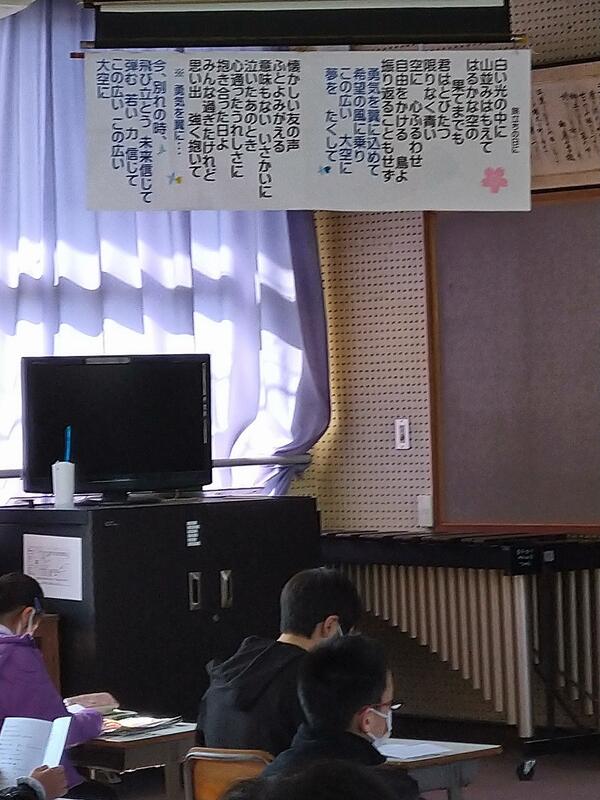 旅立ちの日に
白い光の中に
山並みはもえて
果てまでも
はるかな空の
君はとびたつ
限りなく青い
空に 心ふるわせ
自由をかける 鳥よ
振り返ることもせず
勇気を翼に込めて
希望の風に乗り
この広い 大空に
夢を たくして
懐かしい友の声
ふとよみがえる
意味もない いさかいに
泣いたあのとき
心通ったうれしさに
抱き合った日よ
みんな過ぎたけれど
思い出 強く抱いて
※ 勇気を翼に…
今、別れの時、
飛び立とう 未来信じて
弾む 若い 力 信じて
この広い この広い
大空に